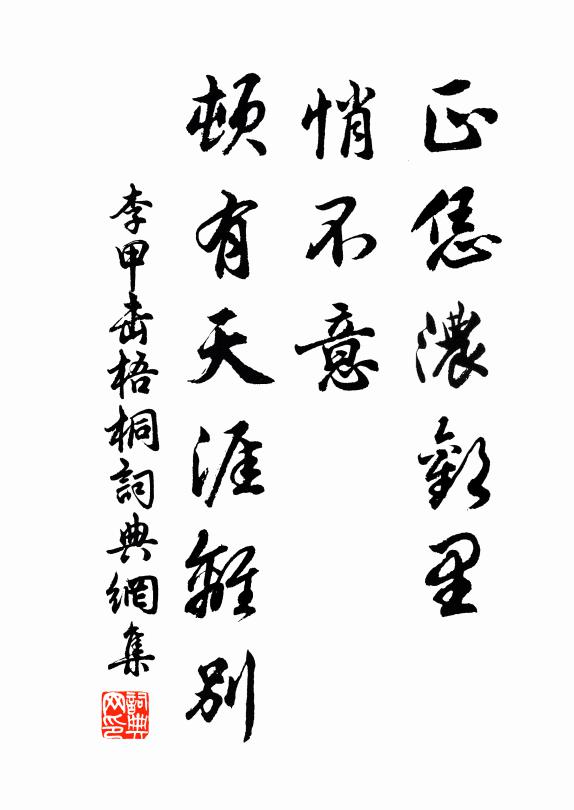 正恁濃歡里
悄不意
頓有天涯離別
李甲击梧桐詞典網集
詞典网印